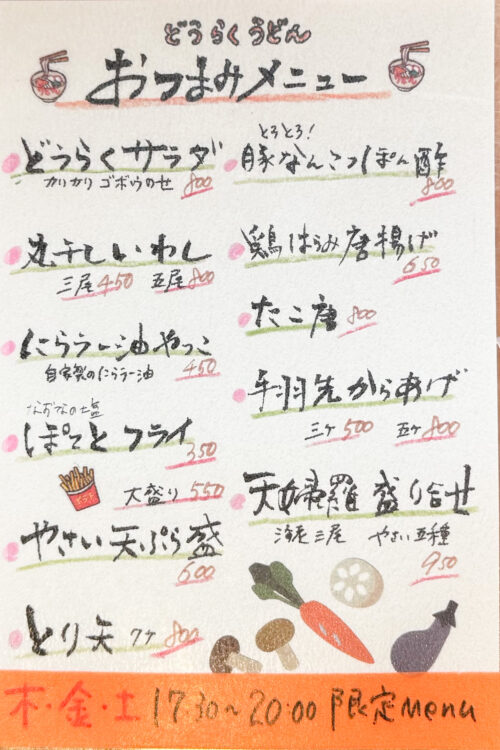 どうらくうどん
おつまみメニュー
どうらくサラダ
カリカリゴボウのせ 800
丸干しいわし
三尾 450 五尾 800
にらうー油やっこ
自家製のにらラー油 450
なおなの塩
ぽてとフライ
350
大盛り 550
やさい天ぷら盛
600
とり天 7ケ 800
とろとろ!
豚なんこつぽん酢
800
鶏はらみ唐揚げ
650
たこ唐 800
手羽先からあげ
三ケ 500 五ケ 800
天婦羅盛り合せ
海老三尾 やさい五種
950
木・金・土 17:30〜20:00 限定Menu